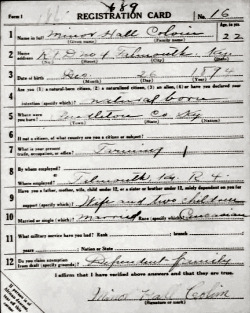 Form 1
689
REGISTRATION CARD
No. 16
1 Name in full Minor Hall Colvin
(Given name) (Family name)
Age, in yrs.
22
2 Home address R F D No 4 Falmouth Ky
(No.) (Street) (City) (State)
3 Date of birth Dec. 26 1894
(Month) (Day) (Year)
4 Are you (1) a natural-born citizen, (2) a naturalized citizen, (3) an alien, (4) or have you declared your
intention (specify which)? natural born
5 Where were you born? Pendleton Co Ky
(Town) (State) (Nation)
6 If not a citizen, of what country are you a citizen or subject?
7 What is your present trade, occupation, or office? Farming
8 By whom employed?
Where employed? Falmouth Ky R 4
9 Have you a father, mother, wife, child under 12, or a sister or brother under 12, solely dependent on you for
support (specify which)? Wife and two children
10 Married or single (which)? Married Race (specify which)? Caucasian
11 What military service have you had? Rank ; branch
years ; Nation or State
12 Do you claim exemption from draft (specify grounds)? Dependent family
I affirm that I have verified above answers and that they are true.
Minor Hall Colvin
(Signature or mark)